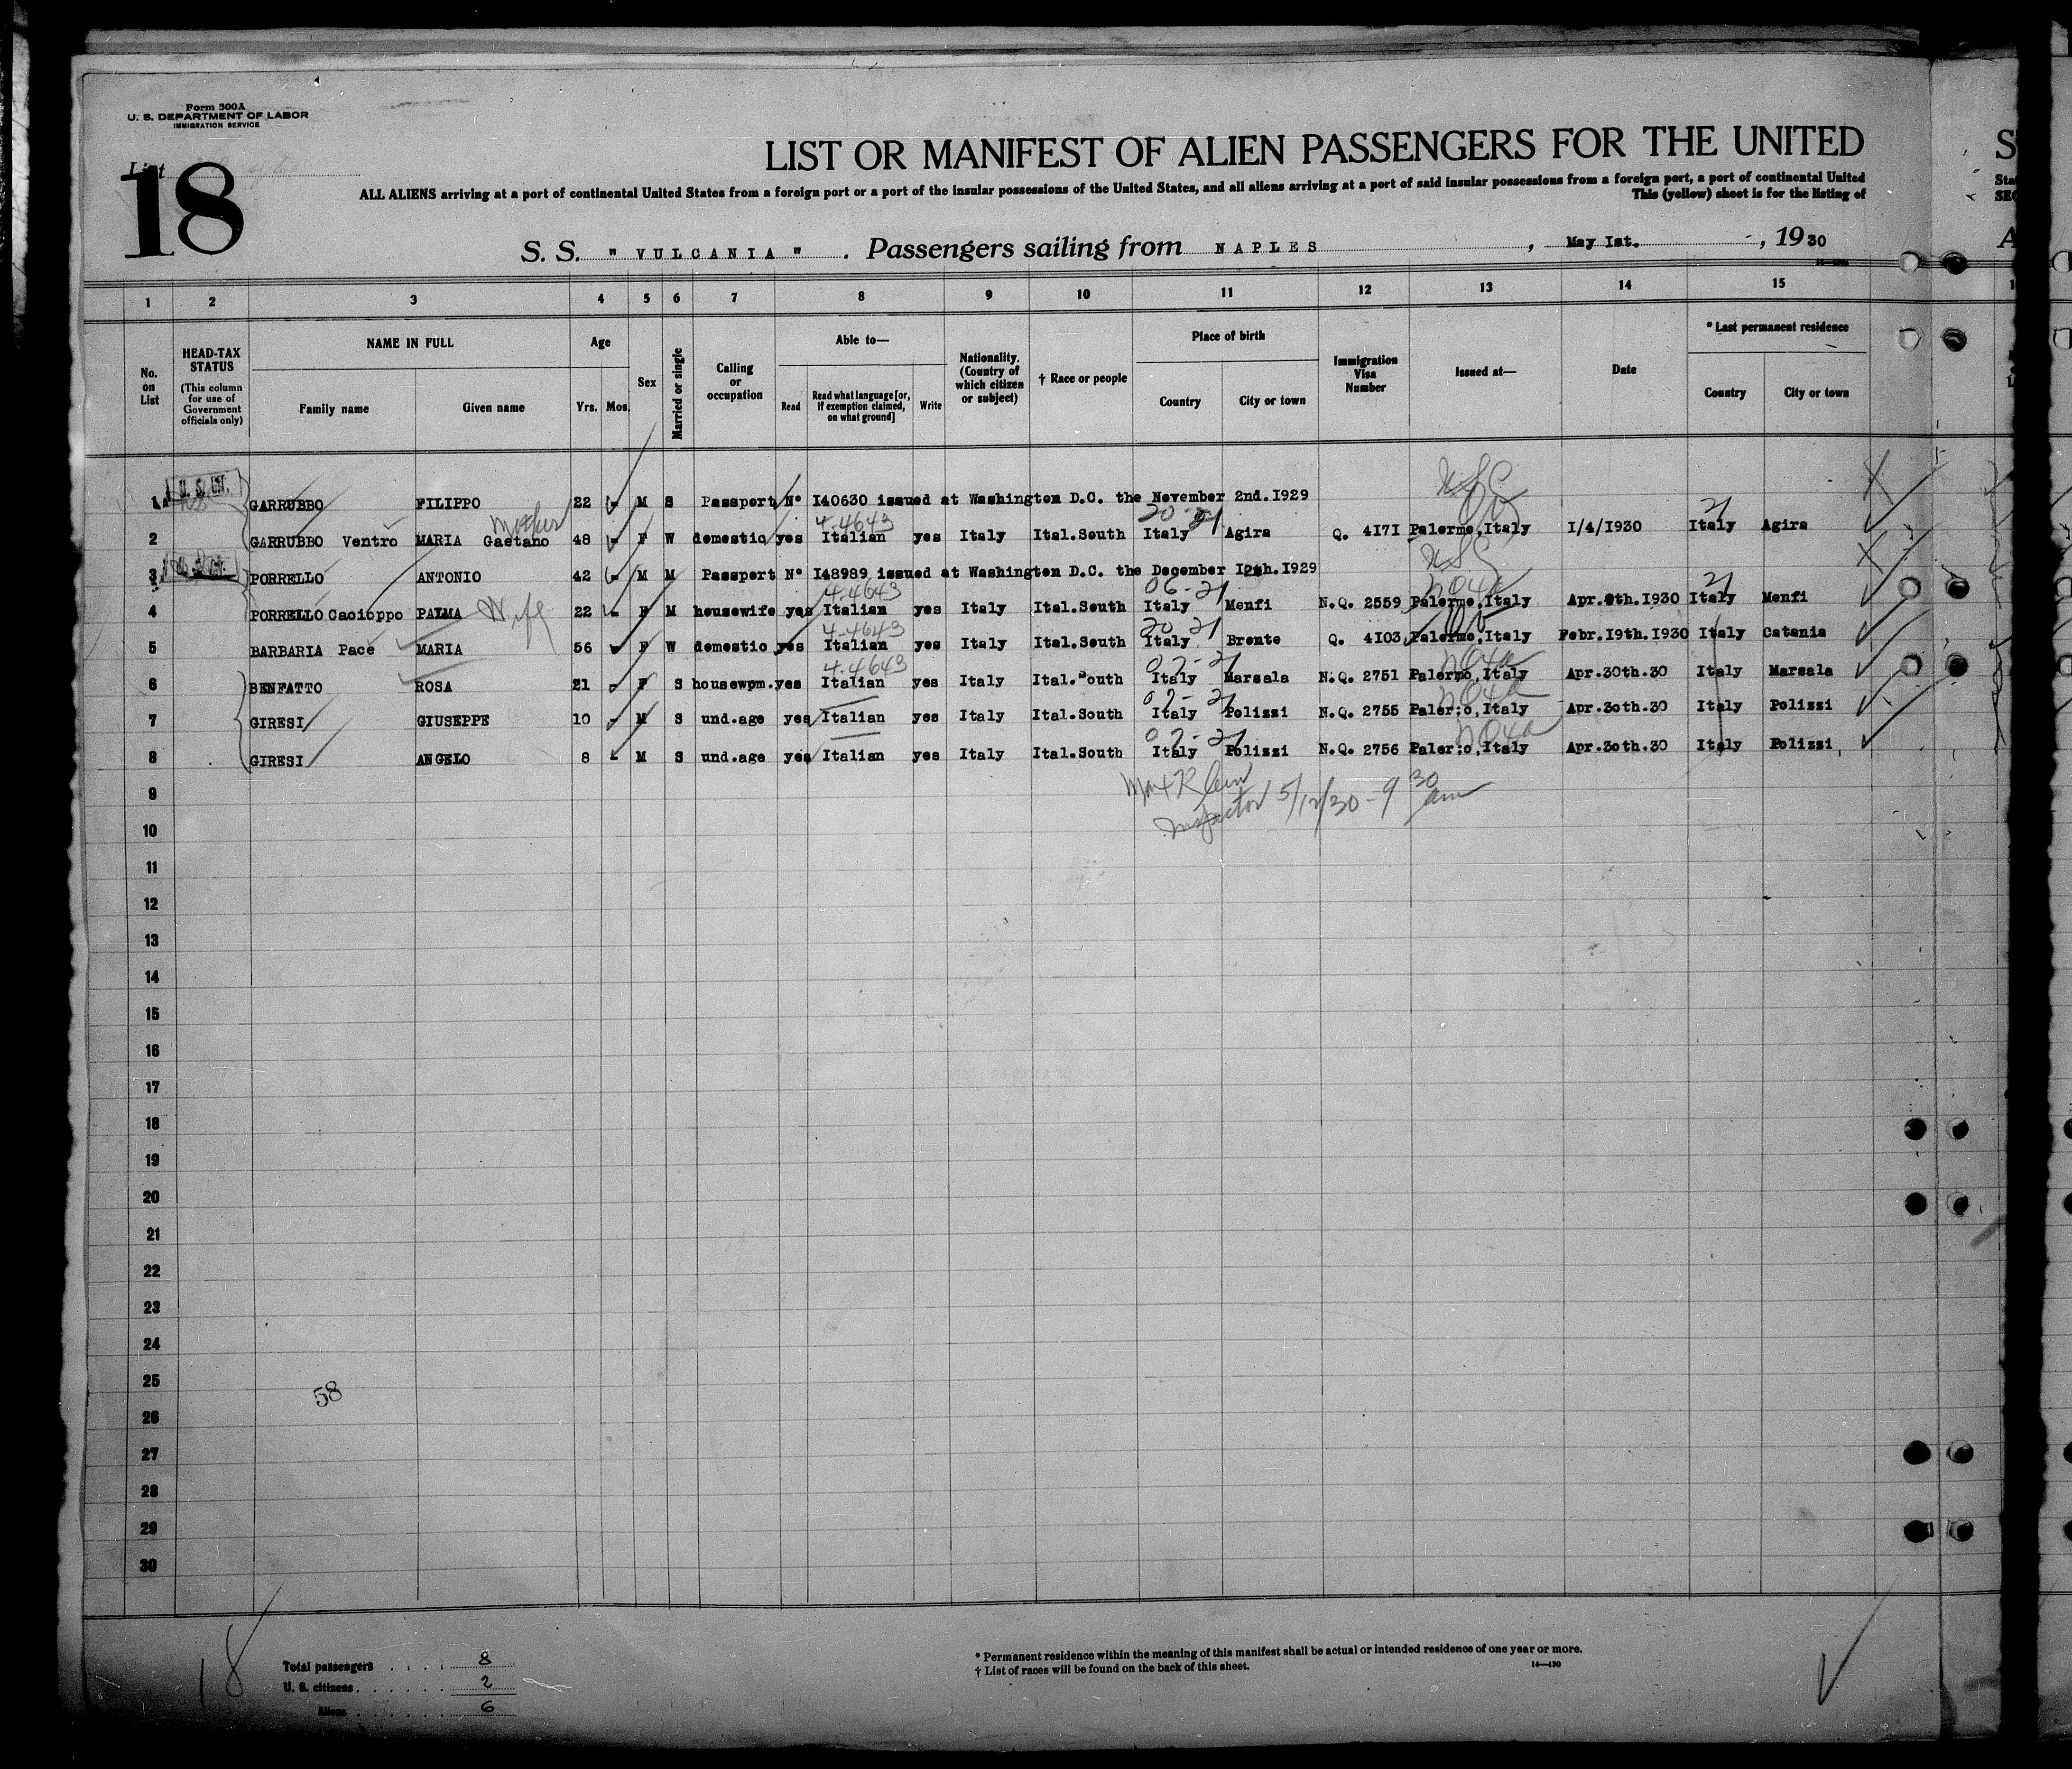 Form 500A
U. S. DEPARTMENT OF LABOR
IMMIGRATION SERVICE
List
18
LIST OR MANIFEST OF ALIEN PASSENGERS FOR THE UNITED
ALL ALIENS arriving at a port of continental United States from a foreign port or a port of the insular possessions of the United States, and all aliens arriving at a port of said insular possessions from a foreign port, a port of continental United
This (yellow) sheet is for the listing of
S. S. " VULCANIA " . Passengers sailing from NAPLES , May Ist. , 1930
1 2 3 4 5 6 7 8 9 10 11 12 13 14 15
No. on List
HEAD-TAX STATUS (This column for use of Government officials only)
NAME IN FULL
Family name Given name
Age
Yrs. Mos.
Sex
Married or single
Calling or occupation
Able to—
Read Read what language [or, if exemption claimed, on what ground] Write
Nationality. (Country of which citizen or subject)
† Race or people
Place of birth
Country City or town
Immigration Visa Number
Issued at—
Date
* Last permanent residence
Country City or town
USC
1 GARRUBBO FILIPPO 22 - M S Passport N° I40630 issued at Washington D.C. the November 2nd.I929
Mother 4-4643 20-21 21
2 GARRUBBO Ventro MARIA Gaetano 48 - F W domestic yes Italian yes Italy Ital.South Italy Agira Q. 4I7I Palermo,Italy I/4/I930 Italy Agira
USC
3 PORRELLO ANTONIO 42 - M M Passport N° I48989 issued at Washington D.C. the December I2th.I929
Wife 4-4643 06-21 no4a 21
4 PORRELLO Cacioppo PALMA 22 - F M housewife yes Italian yes Italy Ital.South Italy Menfi N.Q. 2559 Palermo,Italy Apr.8th.I930 Italy Menfi
4-4643 20 21
5 BARBARIA Pace MARIA 56 F W domestic yes Italian yes Italy Ital.South Italy Bronte Q. 4I03 Palermo,Italy Febr.I9th.I930 Italy Catania
4-4643 07-21 no4a
6 BENFATTO ROSA 21 - F S housewpm.yes Italian yes Italy Ital.South Italy Marsala N.Q. 2751 Palermo,Italy Apr.30th.30 Italy Marsala
07-21 no4a
7 GIRESI GIUSEPPE 10 - M S und.age yes Italian yes Italy Ital.South Italy Polizzi N.Q. 2755 Paler:o,Italy Apr.3oth.30 Italy Polizzi
07-21 no4a
8 GIRESI ANGELO 8 - M S und.age yes Italian yes Italy Ital.South Italy Polizzi N.Q. 2756 Paler:o,Italy Apr.3oth.30 Italy Polizzi
9
Inspector 5/12/30 - 9 30 am
10
11
12
13
14
15
16
17
18
19
20
21
22
23
24
25
58
26
27
28
29
30
18
Total passengers 8
U. S. citizens 2
Aliens 6
* Permanent residence within the meaning of this manifest shall be actual or intended residence of one year or more.
† List of races will be found on the back of this sheet.